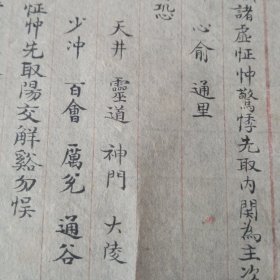 諸虛怔忡驚悸先取內関為主次
心俞 通里
恐
天井 靈道 神門 大陵
少冲 百會 厲兌 通谷
怔忡先取陽交解谿勿悮